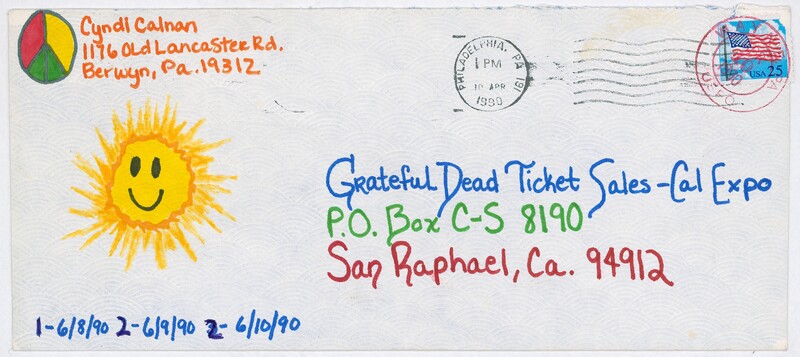 Cyndi Calnan
1176 Old Lancaster Rd.
Berwyn, Pa. 19312
PHILADELPHIA, PA 191
1 PM
10 APR
1990
USA 25
Grateful Dead Ticket Sales - Cal Expo
P.O. Box C-S 8190
San Raphael, Ca. 94912
1-6/8/90 2-6/9/90 2-6/10/90